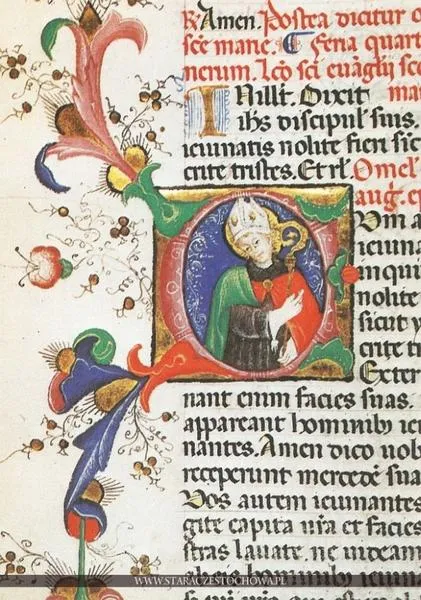 R Amen. Postea dicitur o
scē marie. Feria quart
nerum. Lc̄o sc̄i euāgl̄ij sc̄
mat
IN ill̄. t̄. Dixit
ih̄s discipul̄ suis.
ieiunatis nolite fieri sic
crite tristes. Et rl̄. Omel
aug. ep
Um a
ieiuna
in qui
nolite
sicut y
crite tri
Exter
nant enim facies suas.
appareant hominib; iei
nantes. Amen dico uob
receperunt mercedē sua
Vos autem ieiunantes
gite capita ur̄a et facies
stras lauate. ne uideam
hominib; ieiu
WWW.STARACZESTOCHOWA.PL